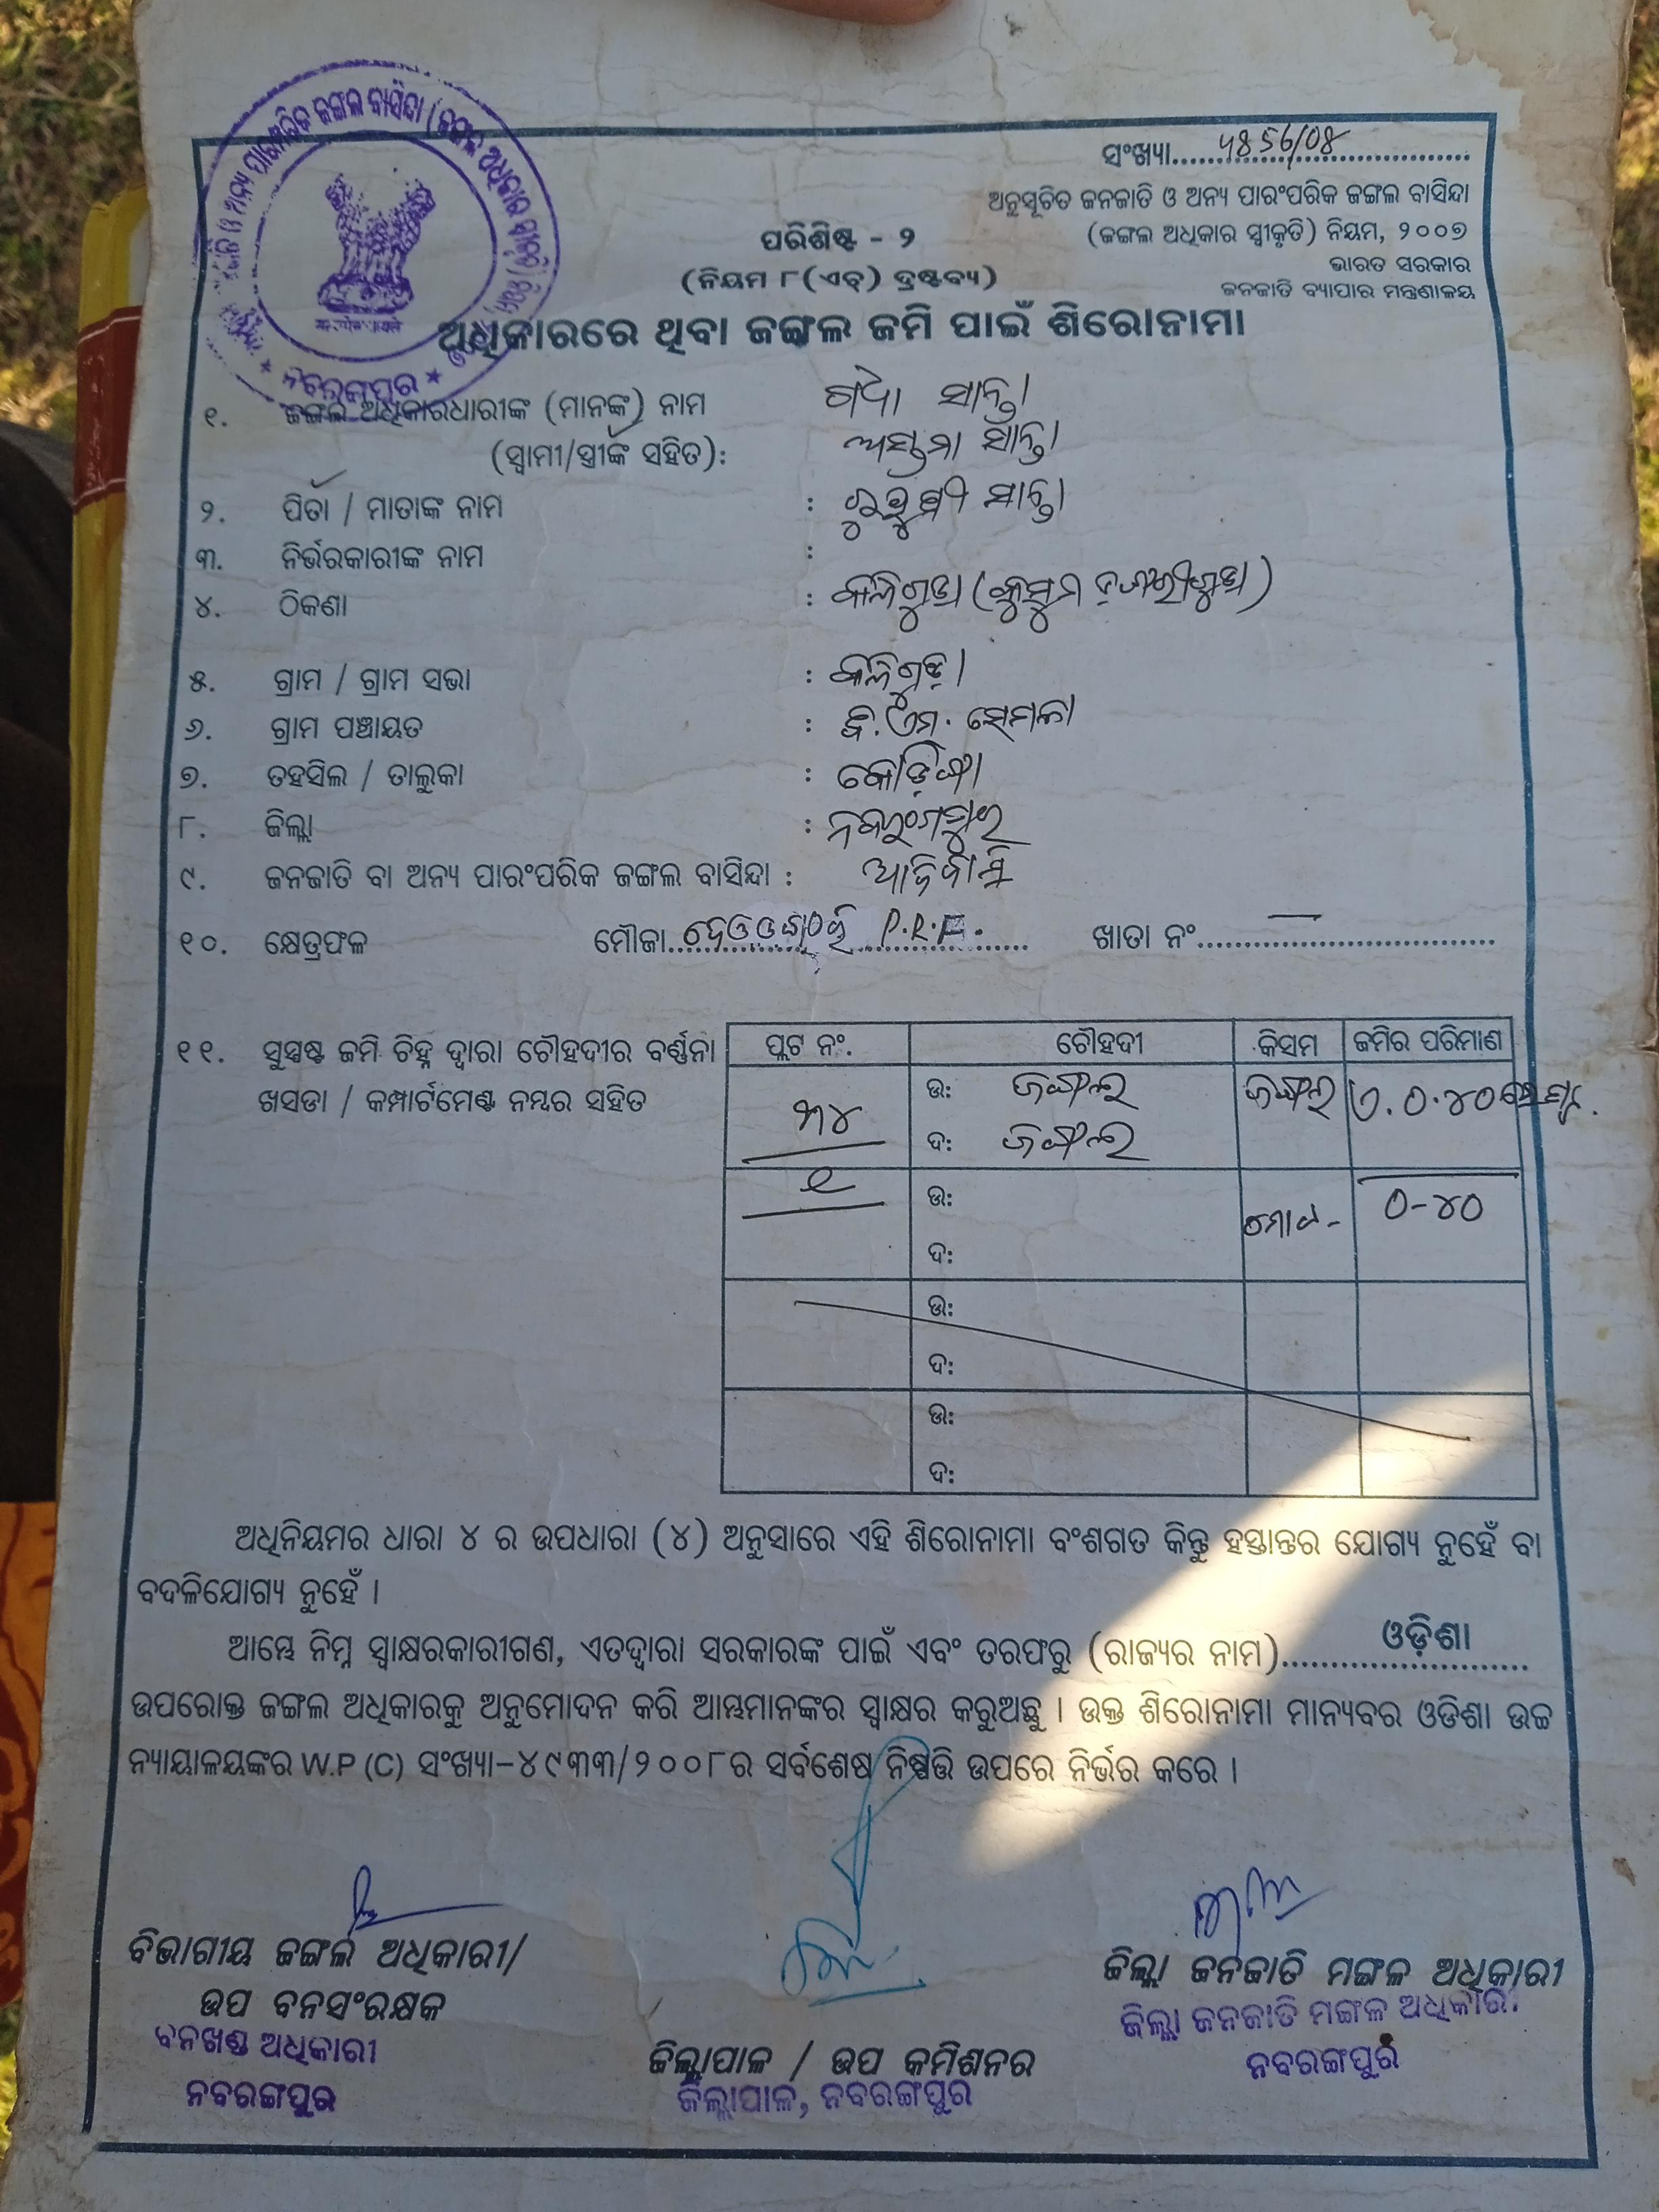 ସଂଖ୍ୟା
ଅନୁସୂଚିତ ଜନଜାତି ଓ ଅନ୍ୟ ପାରଂପରିକ ଜଙ୍ଗଲ ବାସିନ୍ଦା
(ଜଙ୍ଗଲ ଅଧିକାର ସ୍ୱୀକୃତି) ନିୟମ, ୨୦୦୭
ଭାରତ ସରକାର
ଜନଜାତି ବ୍ୟାପାର ମନ୍ତ୍ରଣାଳୟ
ପରିଶିଷ୍ଟ - ୨
(ନିୟମ ୮(ଏଚ୍) ଦ୍ରଷ୍ଟବ୍ୟ)
ଅଧିକାରରେ ଥିବା ଜଙ୍ଗଲ ଜମି ପାଇଁ ଶିରୋନାମା
୧. ଜଙ୍ଗଲ ଅଧିକାରଧାରୀଙ୍କ (ମାନଙ୍କ) ନାମ ସାନ୍ତା
(ସ୍ୱାମୀ/ସ୍ତ୍ରୀଙ୍କ ସହିତ): ସାନ୍ତା
୨. ପିତା / ମାତାଙ୍କ ନାମ : ସାନ୍ତା
୩. ନିର୍ଭରକାରୀଙ୍କ ନାମ :
୪. ଠିକଣା :
୫. ଗ୍ରାମ / ଗ୍ରାମ ସଭା :
୬. ଗ୍ରାମ ପଞ୍ଚାୟତ : ବି.ଏମ. ସେମଳା
୭. ତହସିଲ / ତାଲୁକା : କୋଡ଼ିଙ୍ଗା
୮. ଜିଲ୍ଲା : ନବରଂଗପୁର
୯. ଜନଜାତି ବା ଅନ୍ୟ ପାରଂପରିକ ଜଙ୍ଗଲ ବାସିନ୍ଦା : ଆଦିବାସୀ
୧୦. କ୍ଷେତ୍ରଫଳ ମୌଜା P.R.F. ଖାତା ନଂ
୧୧. ସୁସ୍ପଷ୍ଟ ଜମି ଚିହ୍ନ ଦ୍ୱାରା ଚୌହଦୀର ବର୍ଣ୍ଣନା
ଖସଡା / କମ୍ପାର୍ଟମେଣ୍ଟ ନମ୍ବର ସହିତ
ପ୍ଲଟ ନଂ. ଚୌହଦୀ କିସମ ଜମିର ପରିମାଣ
୩୪ ଉ: ଜଙ୍ଗଲ ଜଙ୍ଗଲ ୦.୪୦
ଦ: ଜଙ୍ଗଲ
୧ ଉ: ମୋଟ- ୦-୪୦
ଦ:
ଉ:
ଦ:
ଉ:
ଦ:
ଅଧିନିୟମର ଧାରା ୪ ର ଉପଧାରା (୪) ଅନୁସାରେ ଏହି ଶିରୋନାମା ବଂଶଗତ କିନ୍ତୁ ହସ୍ତାନ୍ତର ଯୋଗ୍ୟ ନୁହେଁ ବା
ବଦଳିଯୋଗ୍ୟ ନୁହେଁ ।
ଆମ୍ଭେ ନିମ୍ନ ସ୍ୱାକ୍ଷରକାରୀଗଣ, ଏତଦ୍ୱାରା ସରକାରଙ୍କ ପାଇଁ ଏବଂ ତରଫରୁ (ରାଜ୍ୟର ନାମ) ଓଡ଼ିଶା
ଉପରୋକ୍ତ ଜଙ୍ଗଲ ଅଧିକାରକୁ ଅନୁମୋଦନ କରି ଆମ୍ଭମାନଙ୍କର ସ୍ୱାକ୍ଷର କରୁଅଛୁ । ଉକ୍ତ ଶିରୋନାମା ମାନ୍ୟବର ଓଡିଶା ଉଚ୍ଚ
ନ୍ୟାୟାଳୟଙ୍କର W.P (C) ସଂଖ୍ୟା-୪୯୩୩/୨୦୦୮ର ସର୍ବଶେଷ ନିଷ୍ପତ୍ତି ଉପରେ ନିର୍ଭର କରେ ।
ବିଭାଗୀୟ ଜଙ୍ଗଲ ଅଧିକାରୀ/
ଉପ ବନସଂରକ୍ଷକ
ବନଖଣ୍ଡ ଅଧିକାରୀ
ନବରଙ୍ଗପୁର
ଜିଲ୍ଲାପାଳ / ଉପ କମିଶନର
ଜିଲ୍ଲାପାଳ, ନବରଙ୍ଗପୁର
ଜିଲ୍ଲା ଜନଜାତି ମଙ୍ଗଳ ଅଧିକାରୀ
ଜିଲ୍ଲା ଜନଜାତି ମଙ୍ଗଳ ଅଧିକାରୀ
ନବରଙ୍ଗପୁର